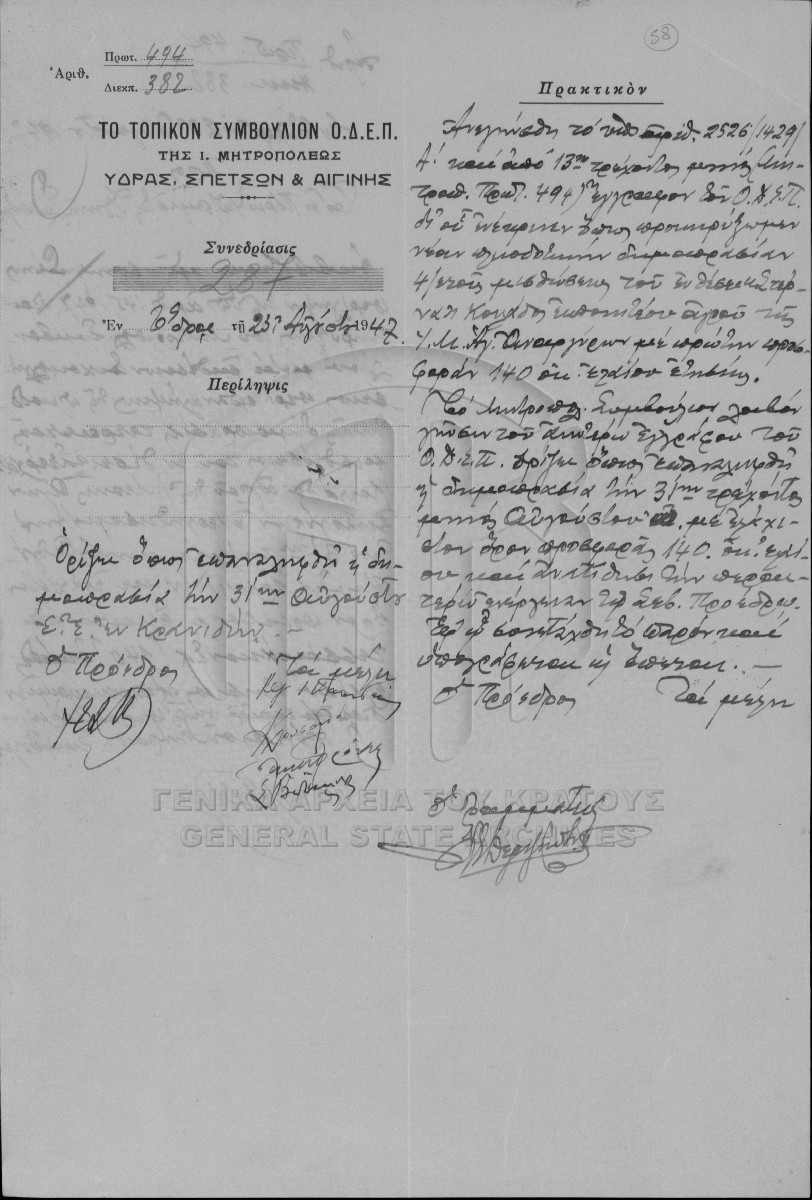 58
Πρωτ. 494
Ἀριθ.
Διεκπ. 382
ΤΟ ΤΟΠΙΚΟΝ ΣΥΜΒΟΥΛΙΟΝ Ο.Δ.Ε.Π.
ΤΗΣ Ι. ΜΗΤΡΟΠΟΛΕΩΣ
ΥΔΡΑΣ, ΣΠΕΤΣΩΝ & ΑΙΓΙΝΗΣ
Συνεδρίασις
287
Ἐν Ὕδρᾳ τῇ 23ῃ Αὐγούστου 1947
Περίληψις
Ὁρίζει ὅπως ἐπαναληφθῇ ἡ δη-
μοπρασία τὴν 31ην Αὐγούστου
Ἐ. Ἔ. ἐν Κρανιδίῳ. —
Ὁ Πρόεδρος Τὰ μέλη
Πρακτικὸν
Ἀνεγνώσθη τὸ ὑπ' ἀριθ. 2526/1429/
Α' καὶ ἀπὸ 13ης τρέχοντος μηνὸς
Πρωτ. 494) ἔγγραφον τοῦ Ο.Δ.Ε.Π.
δι' οὗ ἐνέκρινεν ὅπως προκηρύξωμεν
νέαν πλειοδοτικὴν δημοπρασίαν
4/ετοῦς μισθώσεως τοῦ ἐν θέσει
ἀγροῦ τῆς
Ἱ. Μ. Ἁγ. Ἀναργύρων μὲ πρώτην προσ-
φορὰν 140 ὀκ. ἐλαίου ἐτησίως.
Τὸ Μητροπ. Συμβούλιον λαβὸν
γνῶσιν τοῦ ἀνωτέρω ἐγγράφου τοῦ
Ο.Δ.Ε.Π. ὁρίζει ὅπως ἐπαναληφθῇ
ἡ δημοπρασία τὴν 31ην τρέχοντος
μηνὸς Αὐγούστου μὲ ἐλάχι-
στον ὅρον προσφορᾶς 140. ὀκ. ἐλαί-
ου καὶ ἀνατίθησι τὴν περαι-
τέρω ἐνέργειαν τῷ Σεβ. Προέδρῳ.
Ἐφ' ᾧ συνετάχθη τὸ παρὸν καὶ
ὑπογράφεται ὡς ἕπεται. —
Ὁ Πρόεδρος Τὰ μέλη
Ὁ Γραμματεὺς
ΓΕΝΙΚΑ ΑΡΧΕΙΑ ΤΟΥ ΚΡΑΤΟΥΣ
GENERAL STATE ARCHIVES